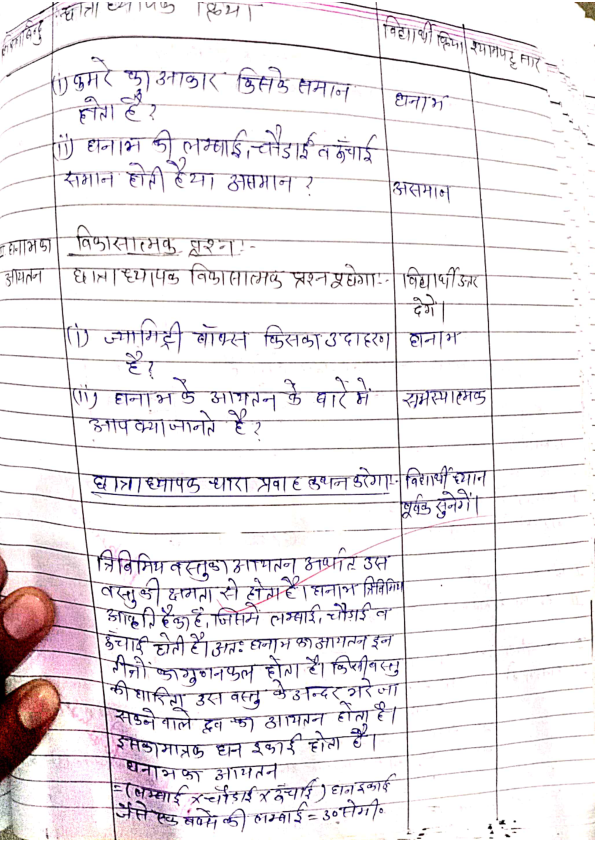 छात्राध्यापक क्रिया
विद्यार्थी क्रिया श्यामपट्ट सार
(i) कमरे का आकार किसके समान
होता है?
घनाभ
(ii) घनाभ की लम्बाई, चौडाई व ऊँचाई
समान होती है या असमान?
असमान
घनाभ का
आयतन
विकासात्मक प्रश्न:-
छात्राध्यापक विकासात्मक प्रश्न पूछेगा:-
विद्यार्थी उत्तर
देगें।
(i) ज्यामिट्री बॉक्स किसका उदाहरण
है?
घनाभ
(ii) घनाभ के आयतन के बारें में
आप क्या जानते है?
समस्यात्मक
छात्राध्यापक धारा प्रवाह कथन करेगा:-
विद्यार्थी ध्यान
पूर्वक सुनेगें।
त्रिविमिय वस्तु का आयतन अर्थात उस
वस्तु की क्षमता से होता है। घनाभ त्रिविमिय
आकृति है, जिसमें लम्बाई, चौडाई व
ऊँचाई होती है। अतः घनाभ का आयतन इन
तीनों का गुणनफल होता है। किसी वस्तु
की धारिता उस वस्तु के अन्दर भरे जा
सकने वाले द्रव का आयतन होता है।
इसका मात्रक घन इकाई होता है।
घनाभ का आयतन
= (लम्बाई × चौडाई × ऊँचाई) घन इकाई
जैसे एक बक्से की लम्बाई = 30 सेमी॰